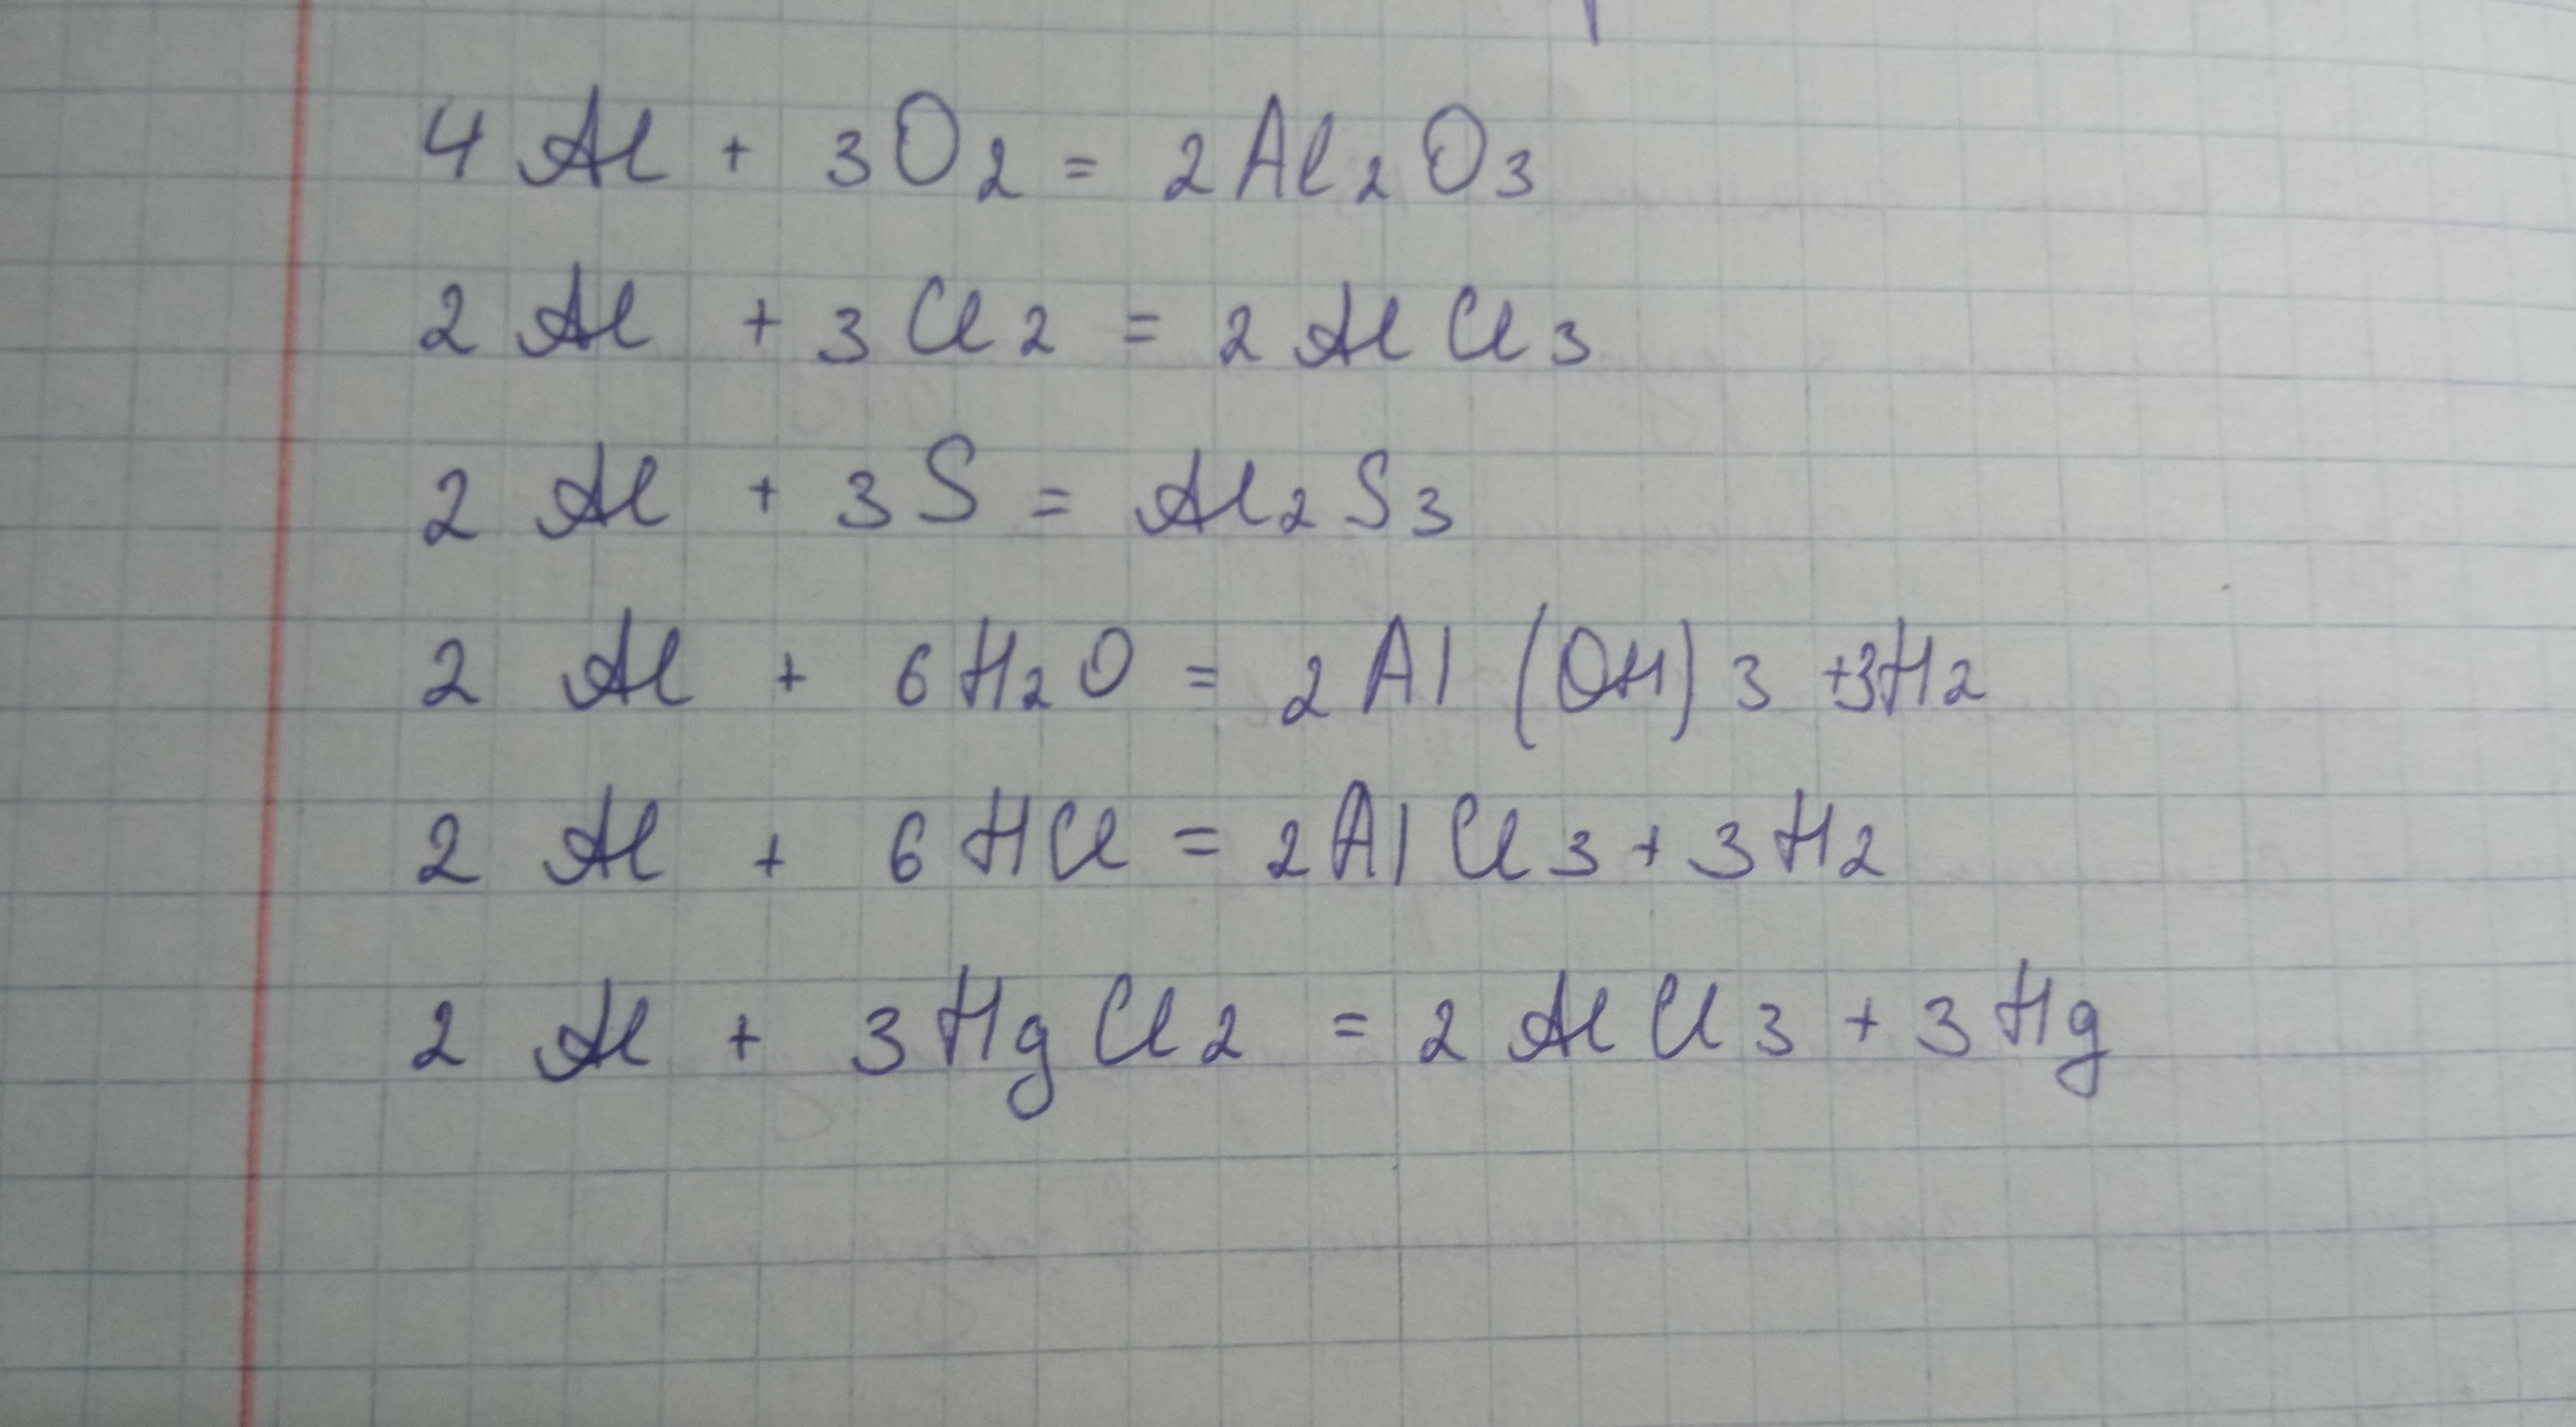 4 Al + 3O2 = 2Al2O3
2 Al + 3Cl2 = 2 AlCl3
2 Al + 3S = Al2S3
2 Al + 6H2O = 2Al(OH)3 +3H2
2 Al + 6HCl = 2AlCl3 + 3H2
2 Al + 3HgCl2 = 2 AlCl3 + 3Hg